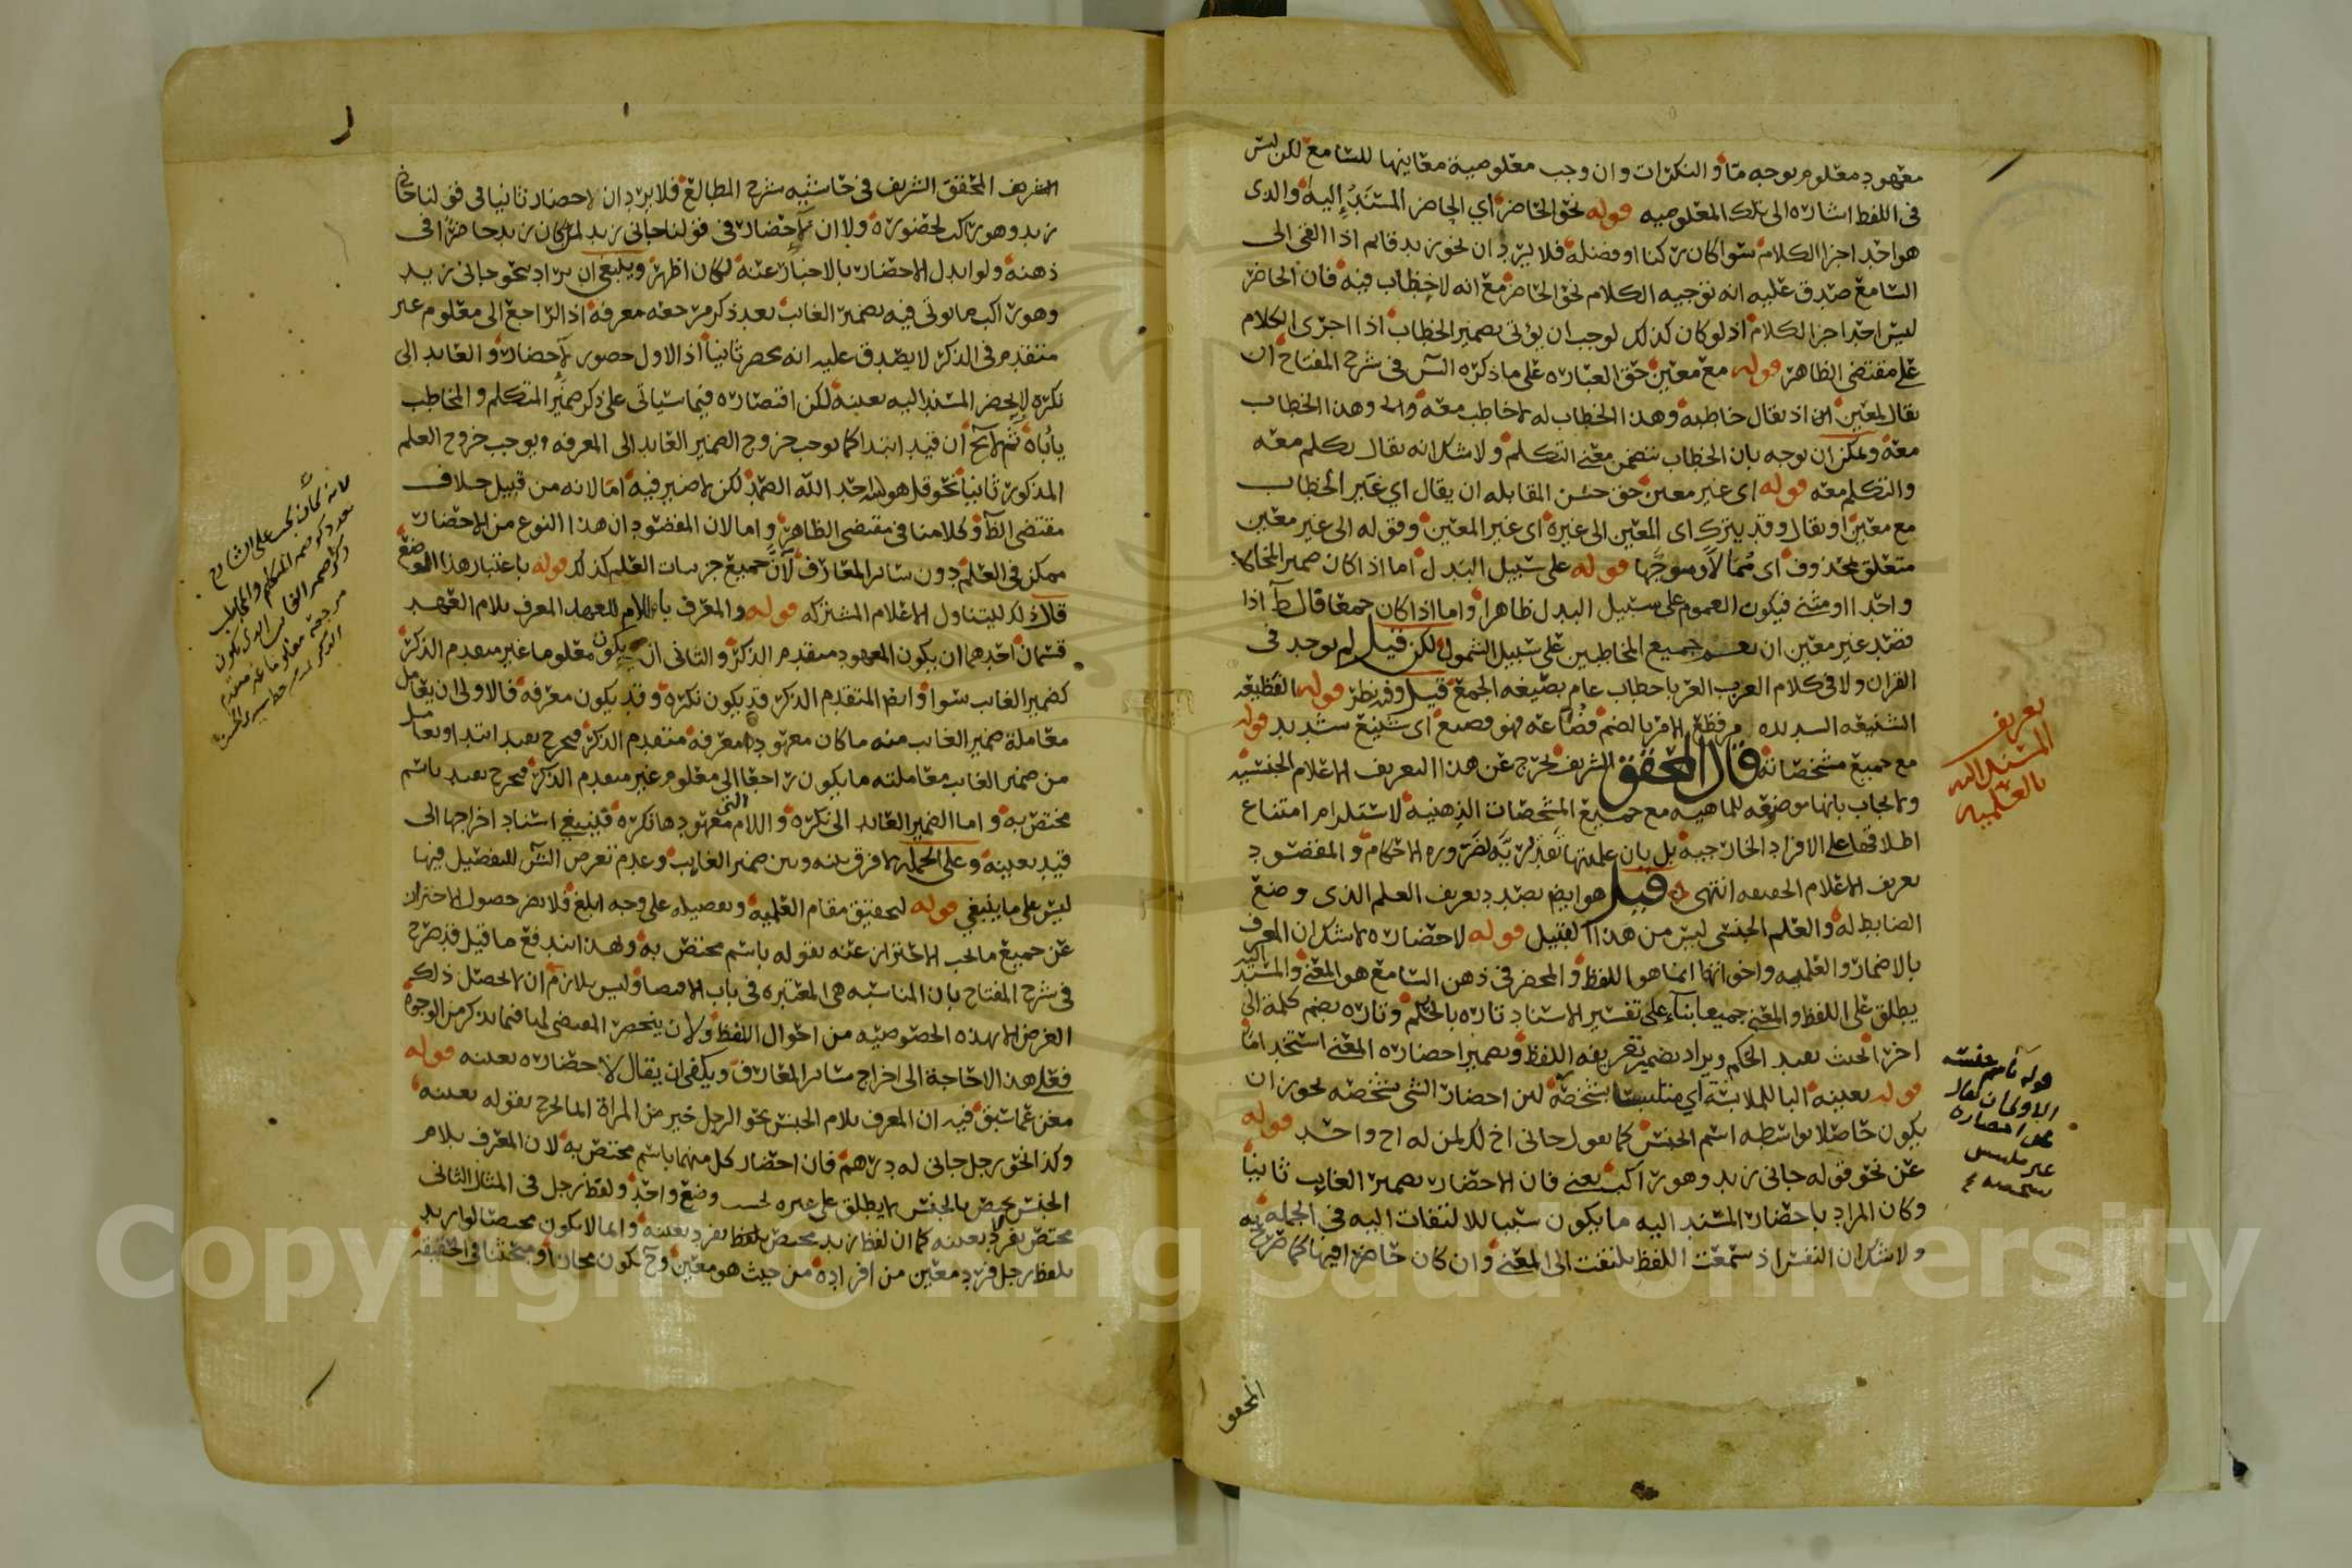 معهود معلوم بوجه ما والنكرات وان وجب معلومية معاينها للسامع لكن ليس
فى اللفظ اشارة الى تلك المعلومية قوله نحو الحاضر اي الحاضر المستند إليه والذى
هو احد اجزا الكلام سوا كان ركنا او فضلة فلا يرد ان نحو زيد قايم اذا القى الى
السامع صدق عليه انه توجيه الكلام نحو الحاضر مع انه لا خطاب فيه فان الحاضر
ليس احد اجزا الكلام اذ لو كان كذلك لوجب ان يؤتى بضمير الخطاب اذا اجرى الكلام
على مقتضى الظاهر قوله مع معين حق العبارة على ما ذكره الش فى شرح المفتاح ان
يقال لمعين اذ يقال خاطبه وهذا الخطاب له لا خاطب معه وهذا الخطاب
معه ويمكن ان يوجه بان الخطاب يتضمن معنى التكلم ولا شك انه يقال تكلم معه
والتكلم معه قوله اى غير معين حق حسن المقابله ان يقال اي غير الخطاب
مع معين او يقال وقد يترك اى المعين الى غيره اى غير المعين وقوله الى غير معين
متعلق بمحذوف اى مُمالاً وموجّها قوله على سبيل البدل اما اذا كان ضمير المخاطب
واحدا او مثنى فيكون العموم على سبيل البدل ظاهرا واما اذا كان جمعا قال ط اذا
قصد غير معين ان يعم جميع المخاطبين على سبيل الشمول لكن قيل لم يوجد فى
القران ولا فى كلام العرب العربا خطاب عام بصيغة الجمع قيل وفيه نظر قوله الفظيعة
الشنيعه الشديده من فظع الامر بالضم فظاعة فهو فظيع اى شنيع شديد قوله
مع جميع مشخصاته قال المحقق الشريف يخرج عن هذا التعريف الاعلام الجنسية
ولا يجاب بانها موضوعه للماهيه مع جميع المشخصات الذهنية لاستلزام امتناع
اطلاقها على الافراد الخارجية بل بان علميتها تقديرية لضرورة الاحكام والمقصود
تعريف الاعلام الحقيقه انتهى قيل هو ايضا بصدد تعريف العلم الذى وضع
الضابط له والعلم الجنسى ليس من هذا القبيل قوله لاحضاره لا شك ان المعرف
بالاضمار والعلمية واخواتها انما هو اللفظ والمحضر فى ذهن السامع هو المعنى والمسند اليه
يطلق على اللفظ والمعنى جميعا بناء على تفسير الاسناد تارة بالحكم وتاره بضم كلمة الى
اخرى بحيث يفيد الحكم ويراد بضمير تعريفه اللفظ وبضمير احضاره المعنى استخداما
قوله بعينه البا للملابسة اي متلبسا بتشخصه لمن احضار الشى بتشخصه يجوز ان
يكون حاصلا بواسطه اسم الجنس كما تقول جانى اخ لك لمن له اح واحد قوله
عن نحو قوله جانى زيد وهو راكب يعنى فان الاحضار بضمير الغايب ثانيا
وكان المراد باحضار المسند اليه ما يكون سببا للالتفات اليه فى الجملة
ولا شك ان النفس اذ سمعت اللفظ يلتفت الى المعنى وان كان حاضرا فيها كما صرح به
المحقق
تعريف
المسند اليه
بالعلمية
الشريف المحقق الشريف فى حاشيه شرح المطالع فلا يرد ان لا احضار ثانيا فى قولنا جانى
زيد وهو راكب لحضوره ولا ان لا احضار فى قولنا جانى زيد لمن كان زيد حاضرا فى
ذهنه ولو ابدل الاحضار بالاخبار عنه لكان اظهر وينبغي ان يراد بنحو جانى زيد
وهو راكب ما يوتى فيه بضمير الغائب بعد ذكر مرجعه معرفة اذ الراجع الى معلوم غير
متقدم فى الذكر لا يصدق عليه انه محضر ثانيا اذ الاول حضور لا احضار والعايد الى
نكره لا يحضر المسند اليه بعينه لكن اقتصاره فيما سياتى على ذكر ضمير المتكلم والمخاطب
ياباه ثم لا يخ ان قيد ابتدا كما يوجب خروج الضمير العايد الى المعرفه يوجب خروج العلم
المذكور ثانيا نحو قل هو الله احد الله الصمد لكن لا ضير فيه اما لانه من قبيل خلاف
مقتضى الظ وكلامنا فى مقتضى الظاهر واما لان المقصود ان هذا النوع من الاحضار
ممكن فى العلم دون ساير المعارف لا انّ جميع جزييات العلم كذلك قوله باعتبار هذا الوضع
قال ذلك ليتناول الاعلام المشتركه قوله والمعرف بالام للعهد المعرف بلام العهد
قسمان احدهما ان يكون المعهود متقدم الذكر والثانى ان يكون معلوما غير متقدم الذكر
كضمير الغايب سوا وايضا المتقدم الذكر قد يكون نكرة وقد يكون معرفه فالاولى ان يعامل
معاملة ضمير الغايب منه ما كان معهودا معرفة متقدم الذكر فيخرج بقيد ابتدا ويعامل
من ضمير الغايب معاملته ما يكون راجعا الى معلوم غير متقدم الذكر فيخرج بقيد باسم
مختص به واما الضمير العايد الى نكرة واللام التى معهودها نكره فينبغي اسناد اخراجها الى
قيد بعينه وعلى الجملة لا فرق بينه وبين ضمير الغايب وعدم تعرض الش للتفصيل فيها
ليس على ما ينبغي قوله لتحقيق مقام العلمية وتفصيله على وجه ابلغ فلا يضر حصول الاحتراز
عن جميع ما يجب الاحتراز عنه بقوله باسم مختص به ولهذا اندفع ما قيل قد صرح
فى شرح المفتاح بان المناسبه هى المعتبره فى باب الاقتضا وليس بلازم ان لا يحصل ذلك
الغرض الا بهذه الخصوصيه من احوال اللفظ ولان ينحصر المقتضى لها فيما يذكر من الوجوه
فعلى هذا لا حاجة الى اخراج ساير المعارف ويكفى ان يقال لاحضاره بعينه قوله
مغن عما سبق فيه ان المعرف بلام الجنس نحو الرجل خير من المراة انما يخرج بقوله بعينه
وكذا نحو رجل جانى له درهم فان احضار كل منهما باسم مختص به لان المعرف بلام
الجنس مختص بالجنس لا يطلق على غيره بحسب وضع واحد ولفظ رجل فى المثال الثانى
مختص بفرد بعينه كما ان لفظ زيد مختص بفرد بعينه وانما لا يكون مختصا لو اريد
بلفظ رجل فرد معين من افراده من حيث هو معين وح يكون مجازا ومبحثنا فى الحقيقة